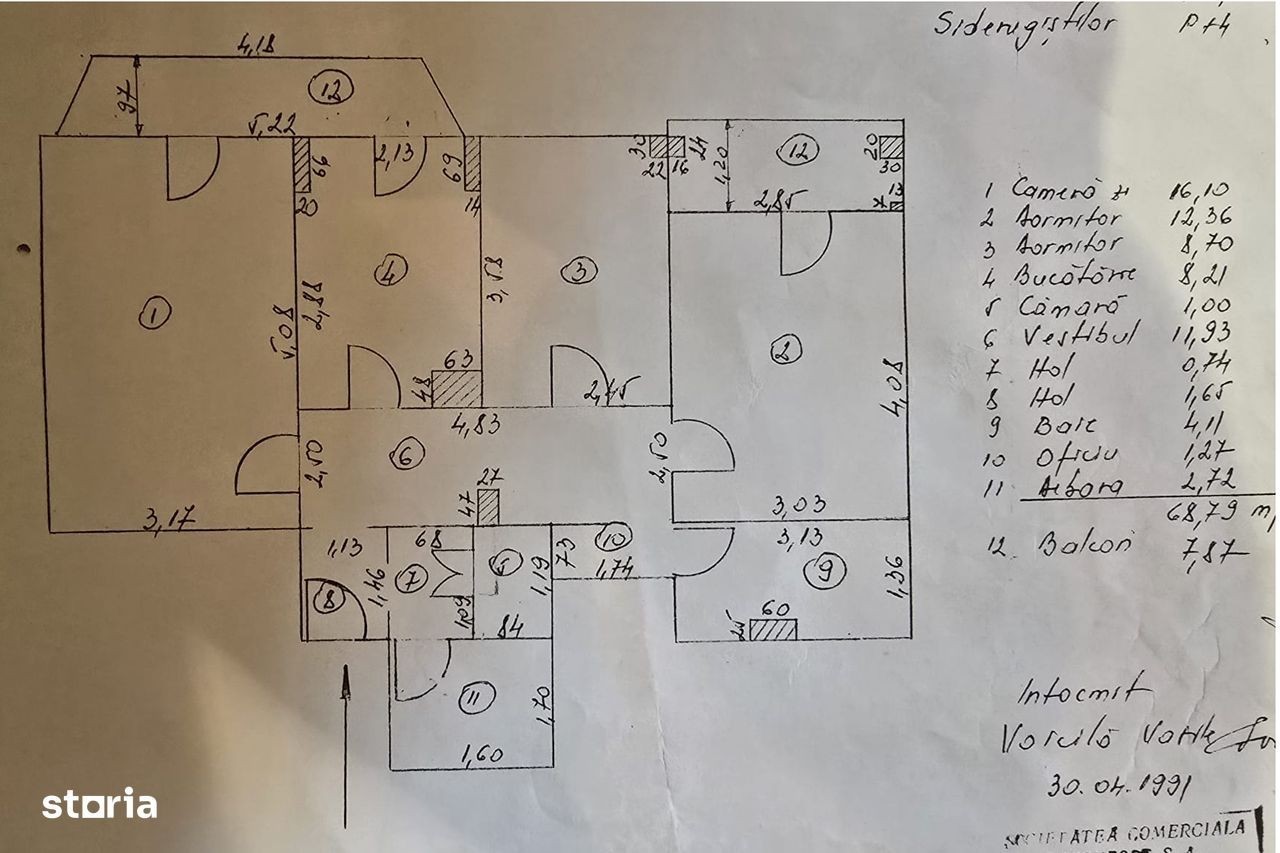 Siderugiștilor P+4
4,18
97
12
5,22
66
20
2,13
69
14
30
22
16
24
1,20
12
20
30
13
7
2,85
1
5,08
2,88
4
3,58
3
2
4,08
63
48
2,45
4,83
2,50
6
2,50
27
47
3,17
3,03
1,13
68
10
3,13
73
1,74
1,46
7
5
1,19
9
1,36
8
1,09
84
60
25
11
1,70
1,60
1 Cameră zi 16,10
2 Dormitor 12,36
3 Dormitor 8,70
4 Bucătărie 8,21
5 Cămară 1,00
6 Vestibul 11,93
7 Hol 0,74
8 Hol 1,65
9 Baie 4,11
10 Oficiu 1,27
11 Debara 2,72
68,79
12 Balcon 7,87
Intocmit
30.04.1991
SOCIETATEA COMERCIALA
S.A.
storia